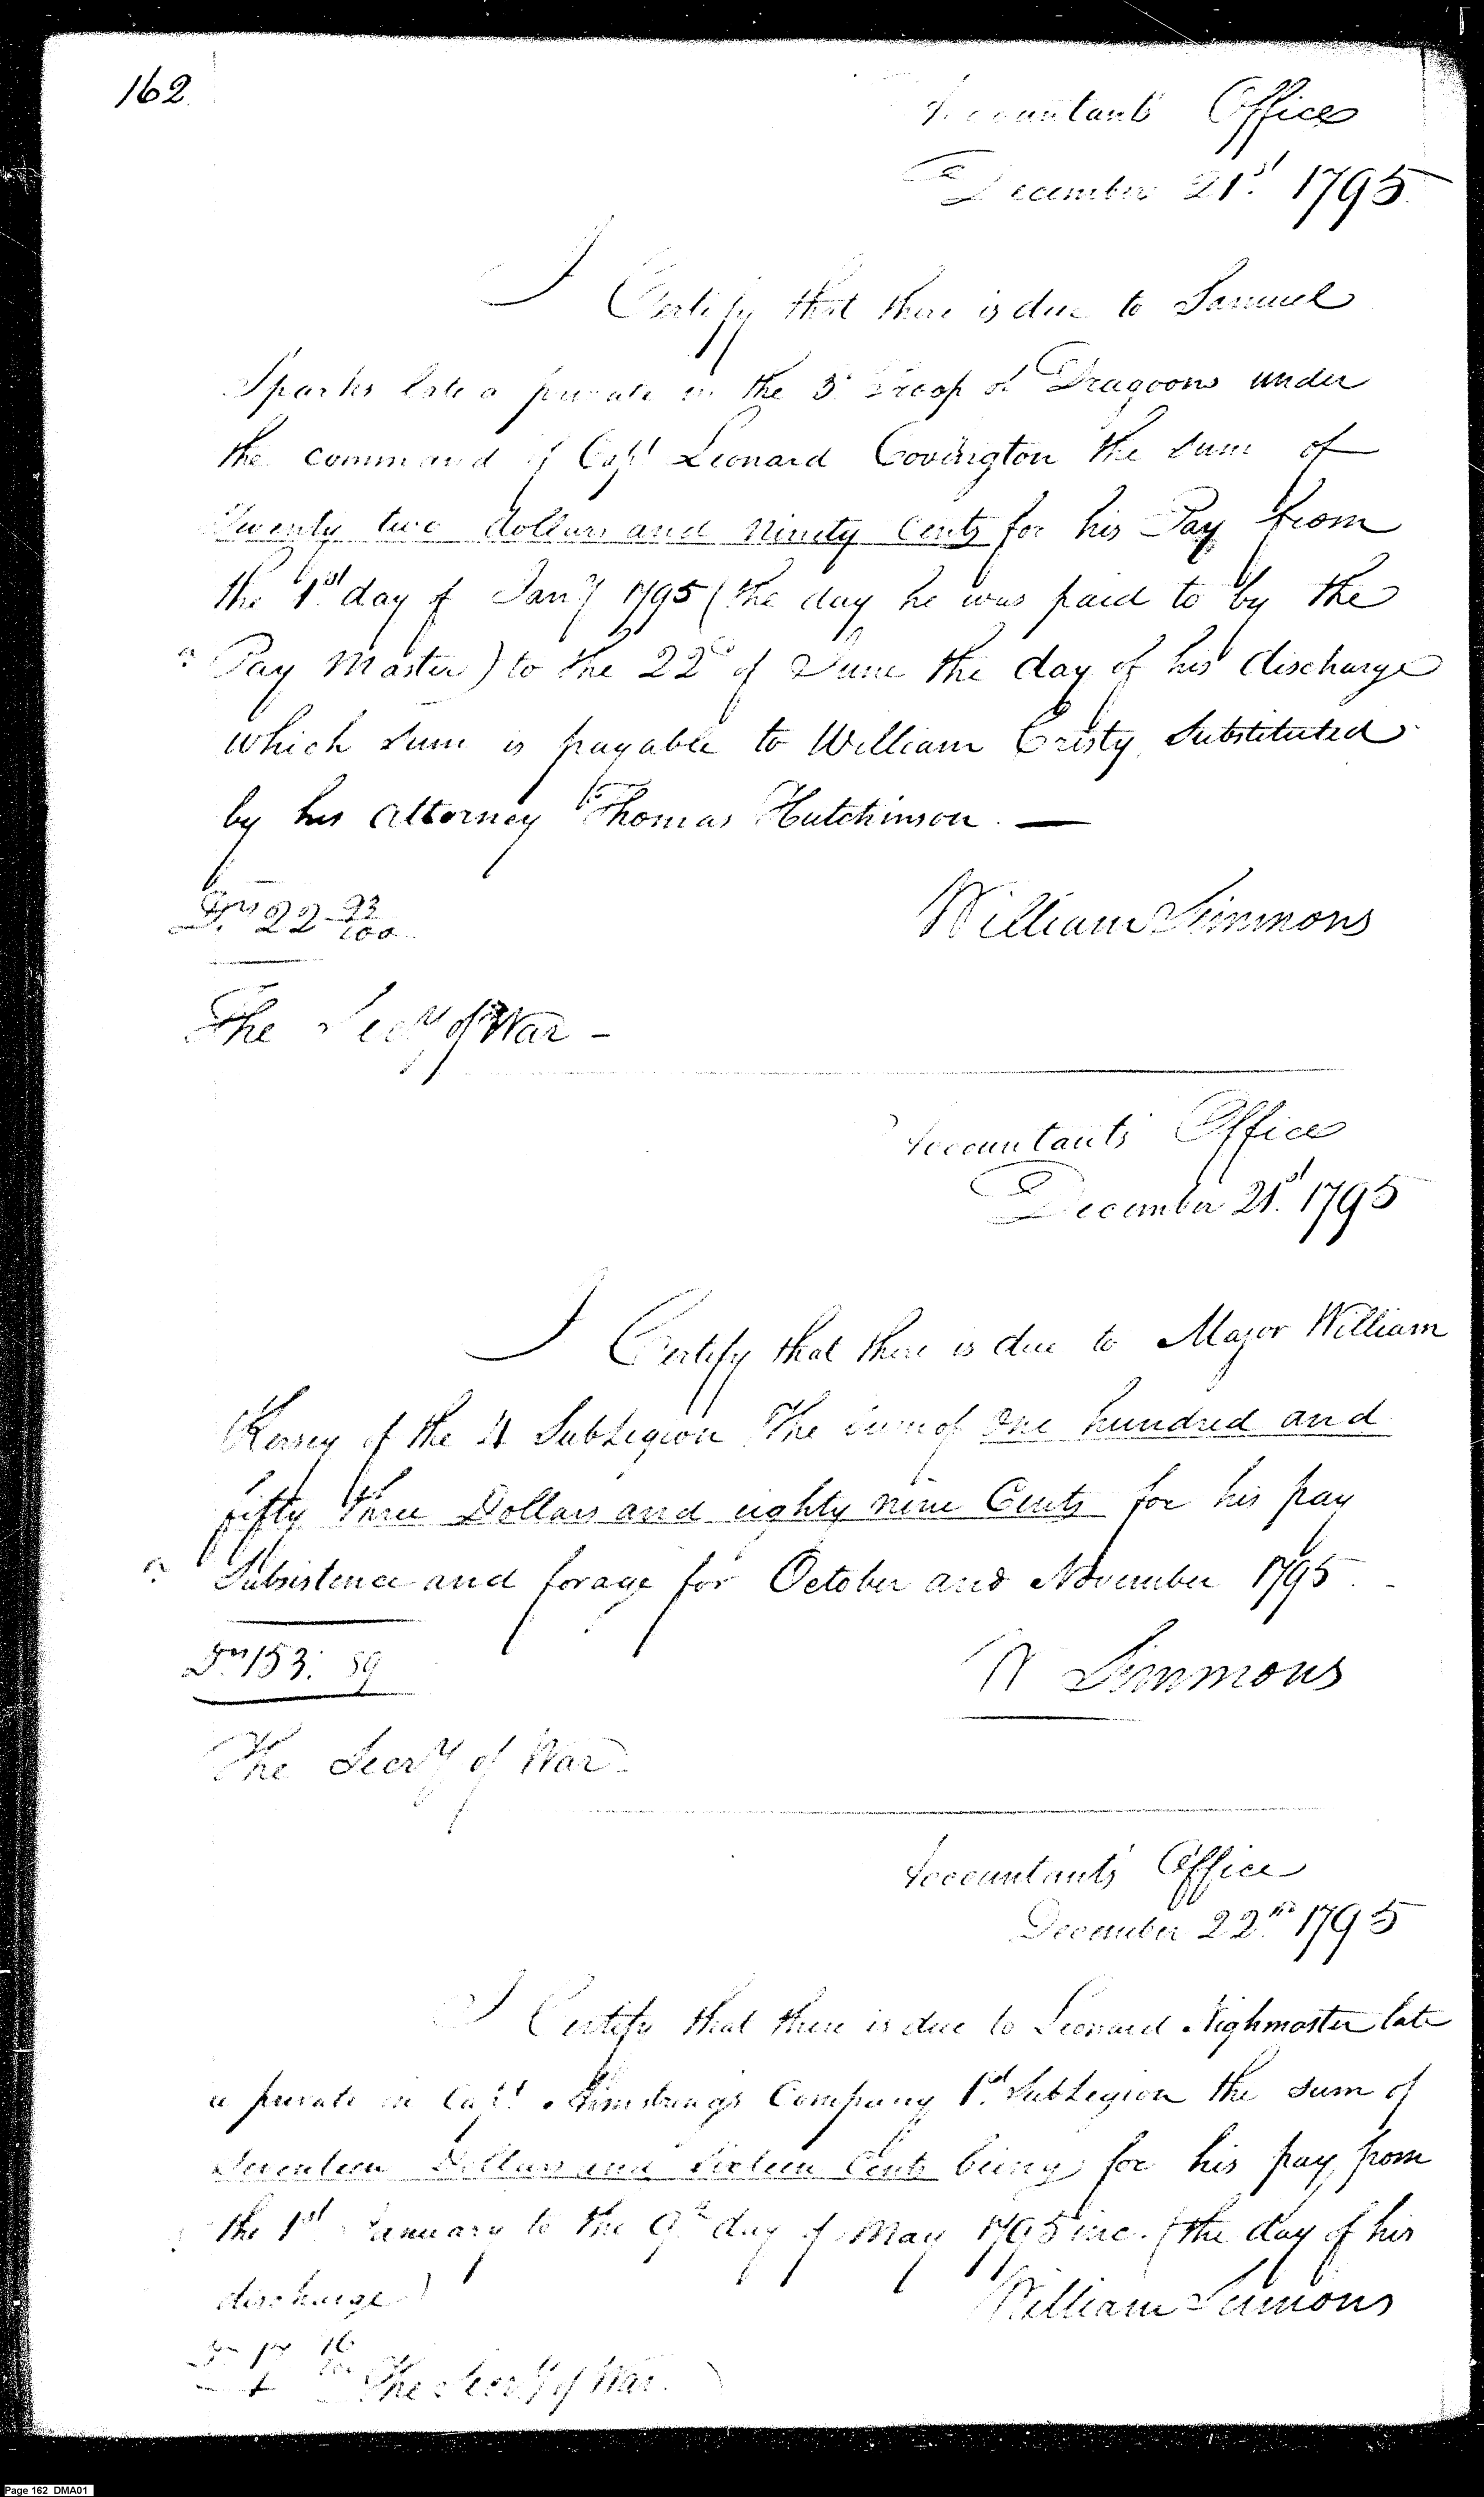 162
Accountants Office
December 21st 1795
I Certify that there is due to Samuel
Sparks late a private in the 3d Troop of Dragoons under
the command of Capt Leonard Covington the sum of
Twenty two dollars and Ninety Cents for his Pay from
the 1st day of Jany 1795 (the day he was paid to by the
Pay Master) to the 22d of June the day of his discharge
which sum is payable to William Cristy Substituted
by his attorney Thomas Hutchinson. —
Drs 22 93/100
William Simmons
The Secy of War –
Accountants Office
December 21st 1795
I Certify that there is due to Major William
Kersey of the 4 SubLegion The sum of One hundred and
fifty three Dollars and eighty nine Cents for his pay
Subsistence and forage for October and November 1795. -
Drs 153: 89
W Simmons
The Secry of War
Accountants Office
December 22nd 1795
I Certify that there is due to Leonard Nighmaster late
a private in Capt Armstrongs Company 1st SubLegion the sum of
Seventeen Dollars and Sixteen Cents being for his pay from
the 1st January to the 9th day of May 1795 inc. (the day of his
discharge)
William Simmons
Drs 17 16/100
The Secry of War.
Page 162 DMA01